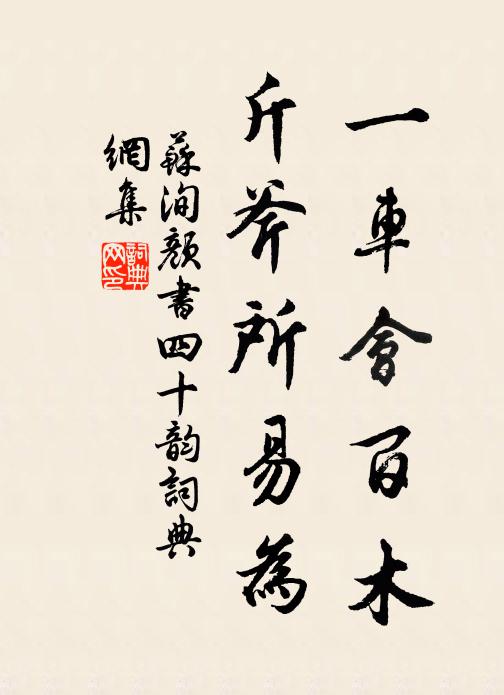 一車會百木
斤斧所易為
蘇洵顏書四十韵詞典
網集
詞典網印